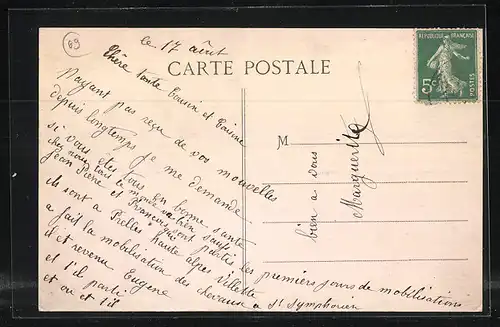 69
le 17 août
CARTE POSTALE
REPUBLIQUE FRANÇAISE
5c
POSTES
Chère tante Cousin et Cousine
N'ayant pas reçu de vos nouvelles
depuis longtemps je me demande
si vous êtes tous en bonne santé
chez nous tout le monde va bien sauf
Jean Pierre et François qui sont partis les premiers jours de mobilisation
ils sont a Prelles Hautes alpes Villette
a fait la mobilisation des chevaux a St Symphorien
il et revenu Eugene
et t'il parti
et ou et t'il
M
bien a vous
Marguerite